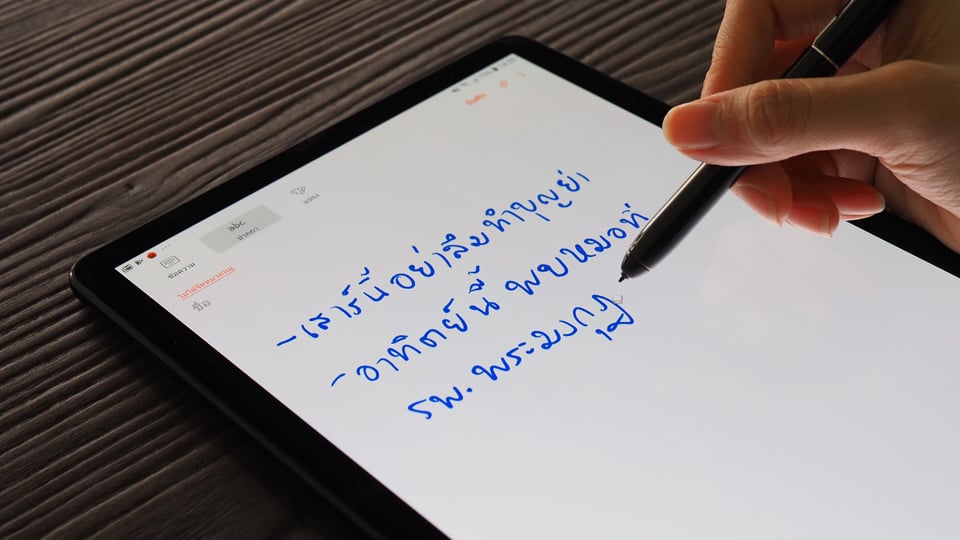 บันทึก
แปรง
abc
ปากกา
ข้อความ
ไม่ได้จัดหมวดหมู่
ชื่อ
- เสาร์นี้ อย่าลืมทำบุญย่า
- อาทิตย์นี้ พบหมอที่
รพ. พระมงกุฎ